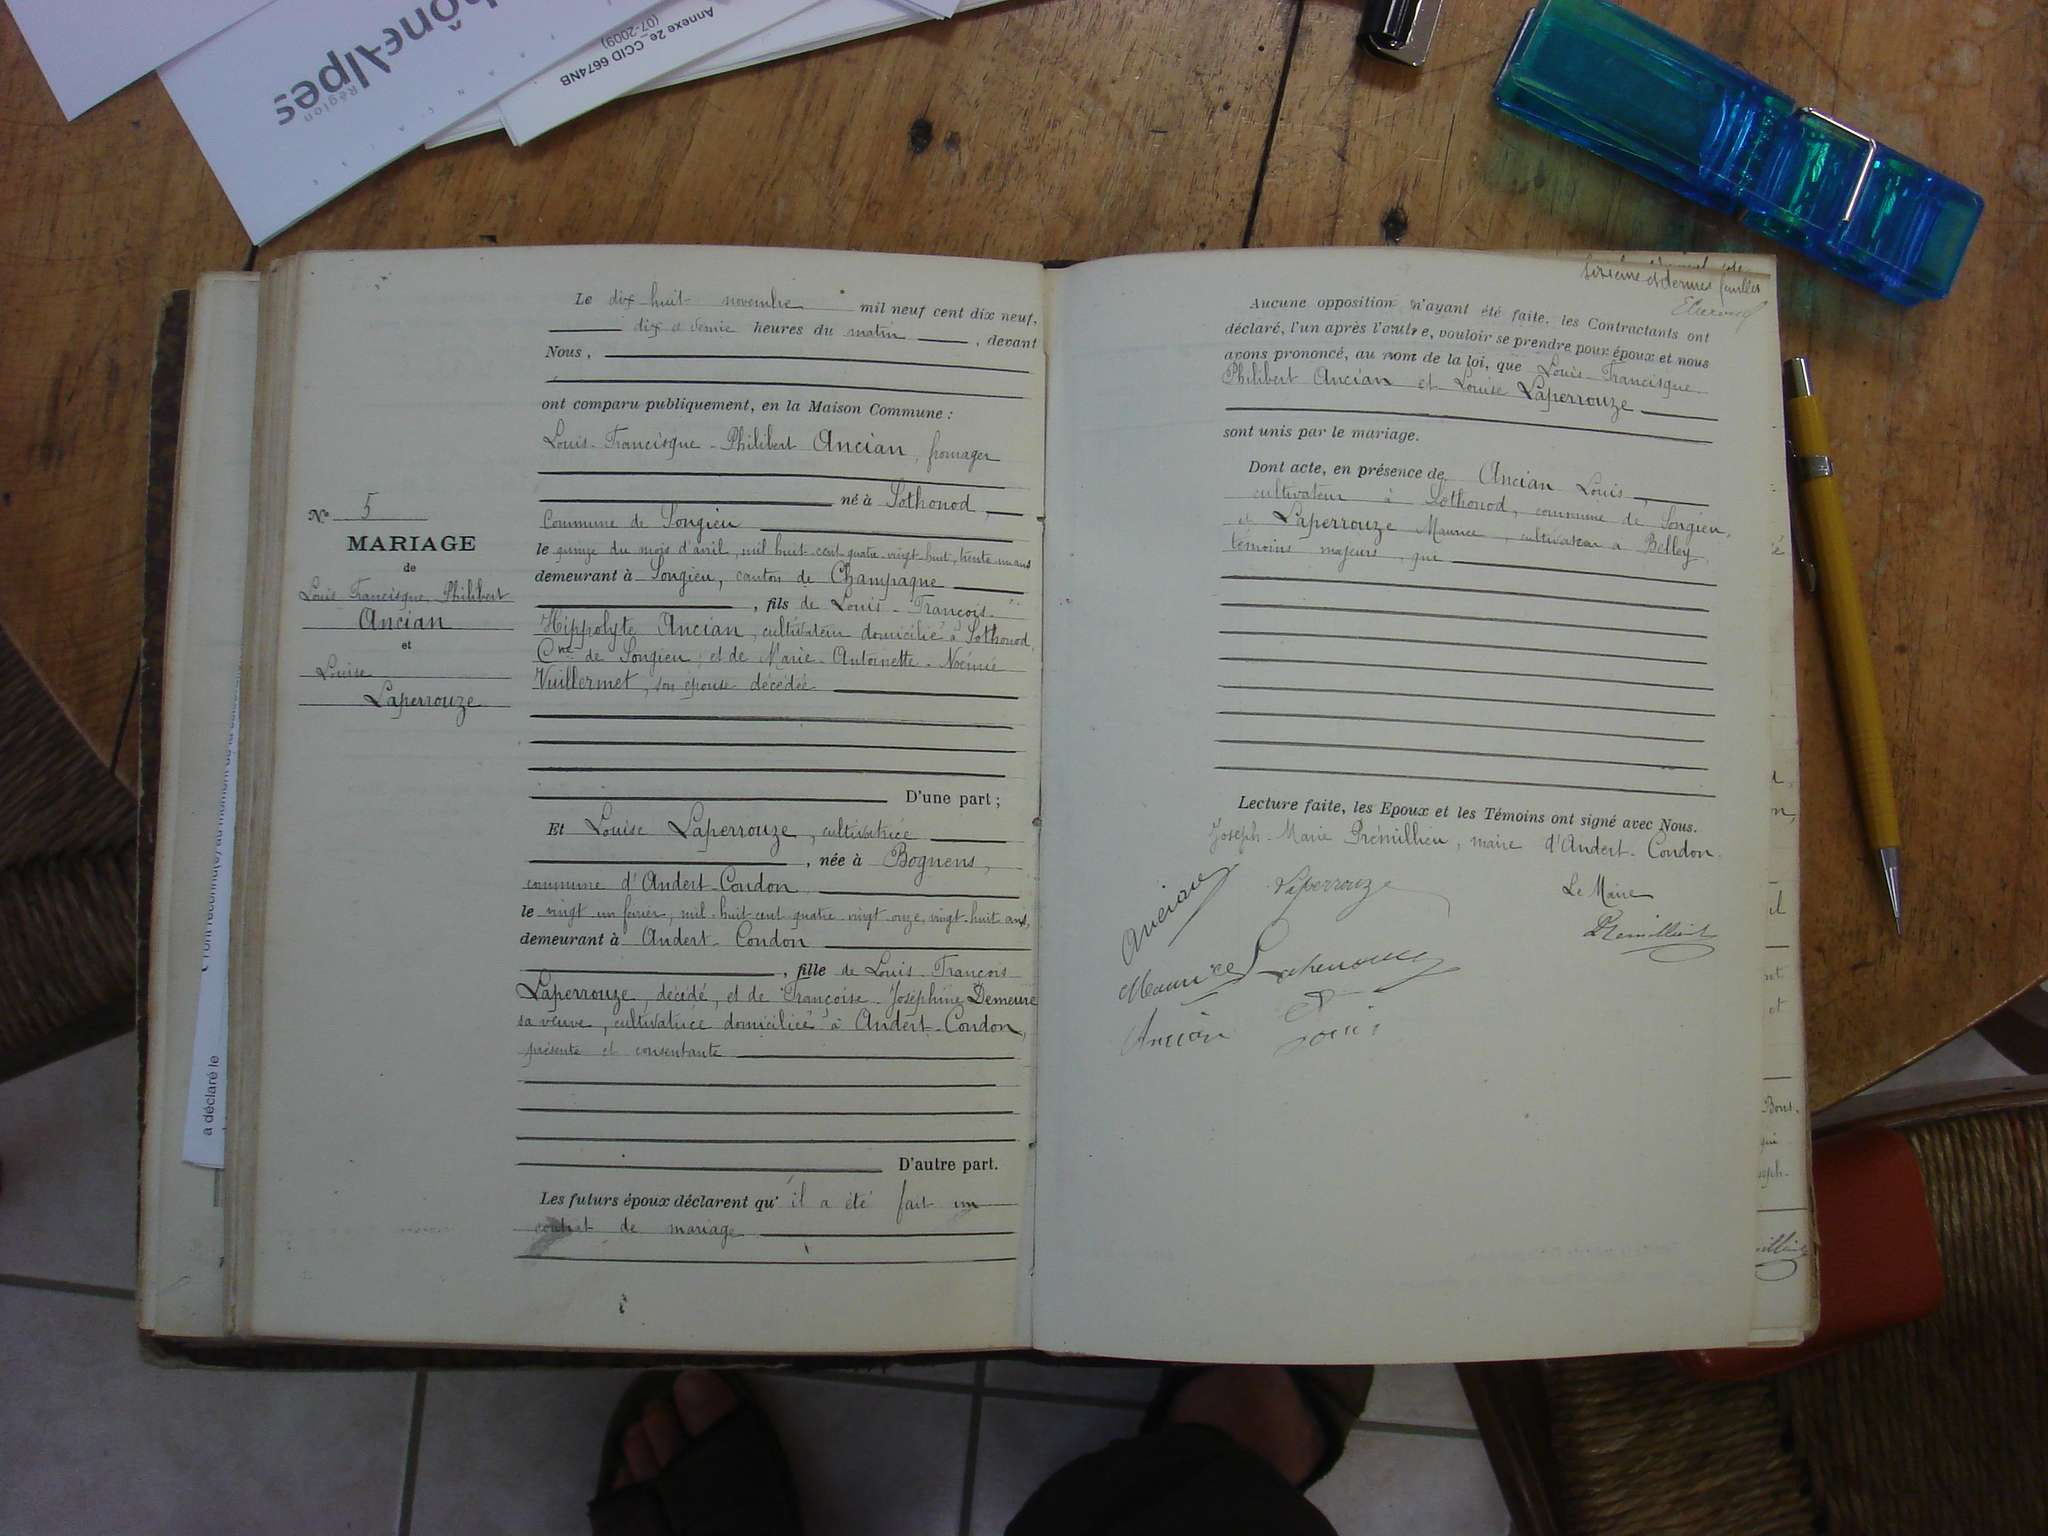 Rhône-Alpes
Région
Annexe 2e_CCID 6674NB
(07-2009)
a déclaré le
N° 5
MARIAGE
de
Louis Francisque Philibert
Ancian
et
Louise
Laperrouze
Le dix huit novembre mil neuf cent dix neuf,
dix et demie heures du matin, devant
Nous,
ont comparu publiquement, en la Maison Commune :
Louis-Francisque-Philibert Ancian, fromager
né à Sothonod,
Commune de Songieu
le quinze du mois d'avril, mil huit cent quatre vingt huit, trente un ans
demeurant à Songieu, canton de Champagne
, fils de Louis-François-
Hippolyte Ancian, cultivateur domicilié à Sothonod
Cne de Songieu, et de Marie-Antoinette-Noémie
Vuillermet, son épouse décédée
D'une part ;
Et Louise Laperrouze, cultivatrice
, née à Bognens,
commune d'Andert-Condon
le vingt un février, mil huit cent quatre vingt onze, vingt huit ans,
demeurant à Andert-Condon
, fille de Louis-François
Laperrouze, décédé, et de Françoise-Joséphine Demeure
sa veuve, cultivatrice domiciliée à Andert-Condon,
présente et consentante
D'autre part.
Les futurs époux déclarent qu'il a été fait un
contrat de mariage
sixième et dernier feuillet
Aucune opposition n'ayant été faite, les Contractants ont
déclaré, l'un après l'autre, vouloir se prendre pour époux et nous
avons prononcé, au nom de la loi, que Louis-Francisque
Philibert Ancian et Louise Laperrouze
sont unis par le mariage.
Dont acte, en présence de Ancian Louis,
cultivateur à Sothonod, commune de Songieu,
et Laperrouze Maurice, cultivateur à Belley,
témoins majeurs, qui
Lecture faite, les Epoux et les Témoins ont signé avec Nous.
Joseph-Marie Prémillieu, maire d'Andert-Condon.
Ancian Laperrouze Le Maire
Prémillieu
Maurice Laperrouze
Ancian Louis